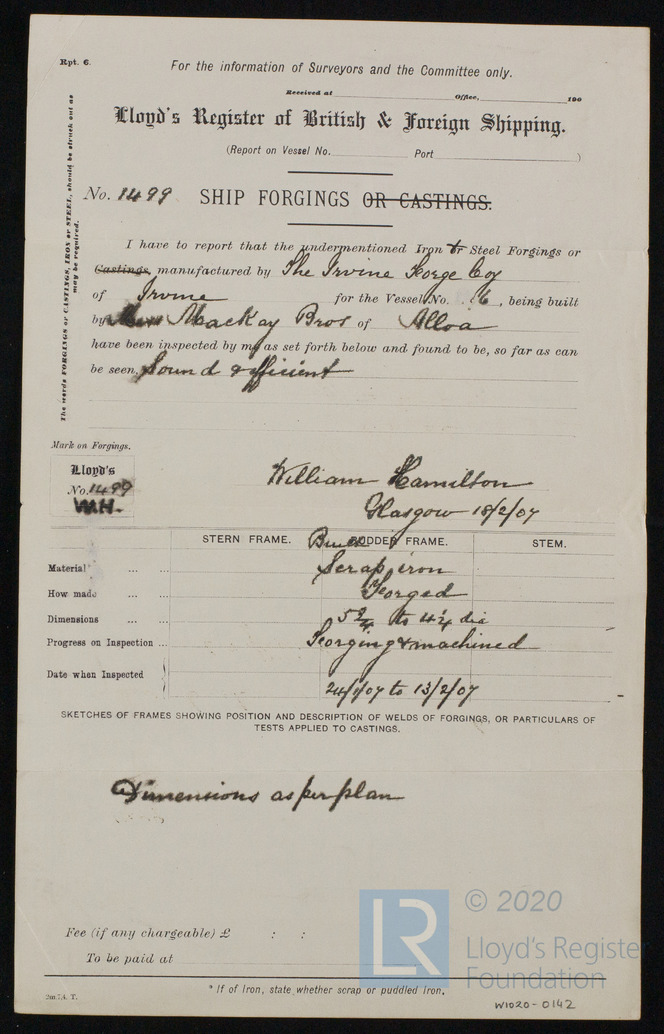 Rpt. 6.
For the information of Surveyors and the Committee only.
Received at Office, 190
Lloyd's Register of British & Foreign Shipping.
(Report on Vessel No. Port )
No. 1499 SHIP FORGINGS OR CASTINGS.
The words FORGINGS or CASTINGS, IRON or STEEL, should be struck out as
may be required.
I have to report that the undermentioned Iron or Steel Forgings or
Castings, manufactured by The Irvine Forge Coy
of Irvine for the Vessel No. 6, being built
by Mackay Bros of Alloa
have been inspected by me as set forth below and found to be, so far as can
be seen, Sound & efficient
Mark on Forgings.
Lloyd's
No. 1499
W.H.
William Hamilton
Glasgow 18/2/07
STERN FRAME. RUDDER FRAME. STEM.
Material Scrap iron
How made Forged
Dimensions to 4¼ dia
Progress on Inspection Forging & machined
Date when Inspected 24/1/07 to 13/2/07
SKETCHES OF FRAMES SHOWING POSITION AND DESCRIPTION OF WELDS OF FORGINGS, OR PARTICULARS OF
TESTS APPLIED TO CASTINGS.
Dimensions as per plan
Fee (if any chargeable) £ : :
To be paid at
* If of Iron, state whether scrap or puddled Iron.
LR © 2020
Lloyd's Register
Foundation
W1020-0142